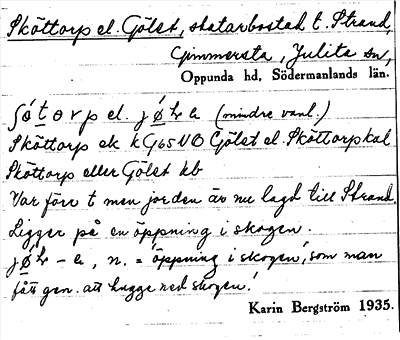 Sköttorp el. Gölst, statarbostad t. Strand,
Gimmersta, Julita sn,
Oppunda hd, Södermanlands län.
ʃö́torp el. jö́ls (mindre vanl.)
Sköttorp ek kG65NO Gölst el. Sköttorp kal
Sköttorp eller Gölst hb
Var förr t men jorden är nu lagd till Strand.
Ligger på en öppning i skogen.
n. = 'öppning i skogen', som man
fått gen. att hugga ned skogen.'
Karin Bergström 1935.